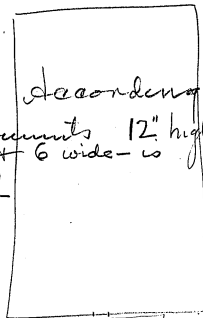 According
12" high
+ 6 wide – is